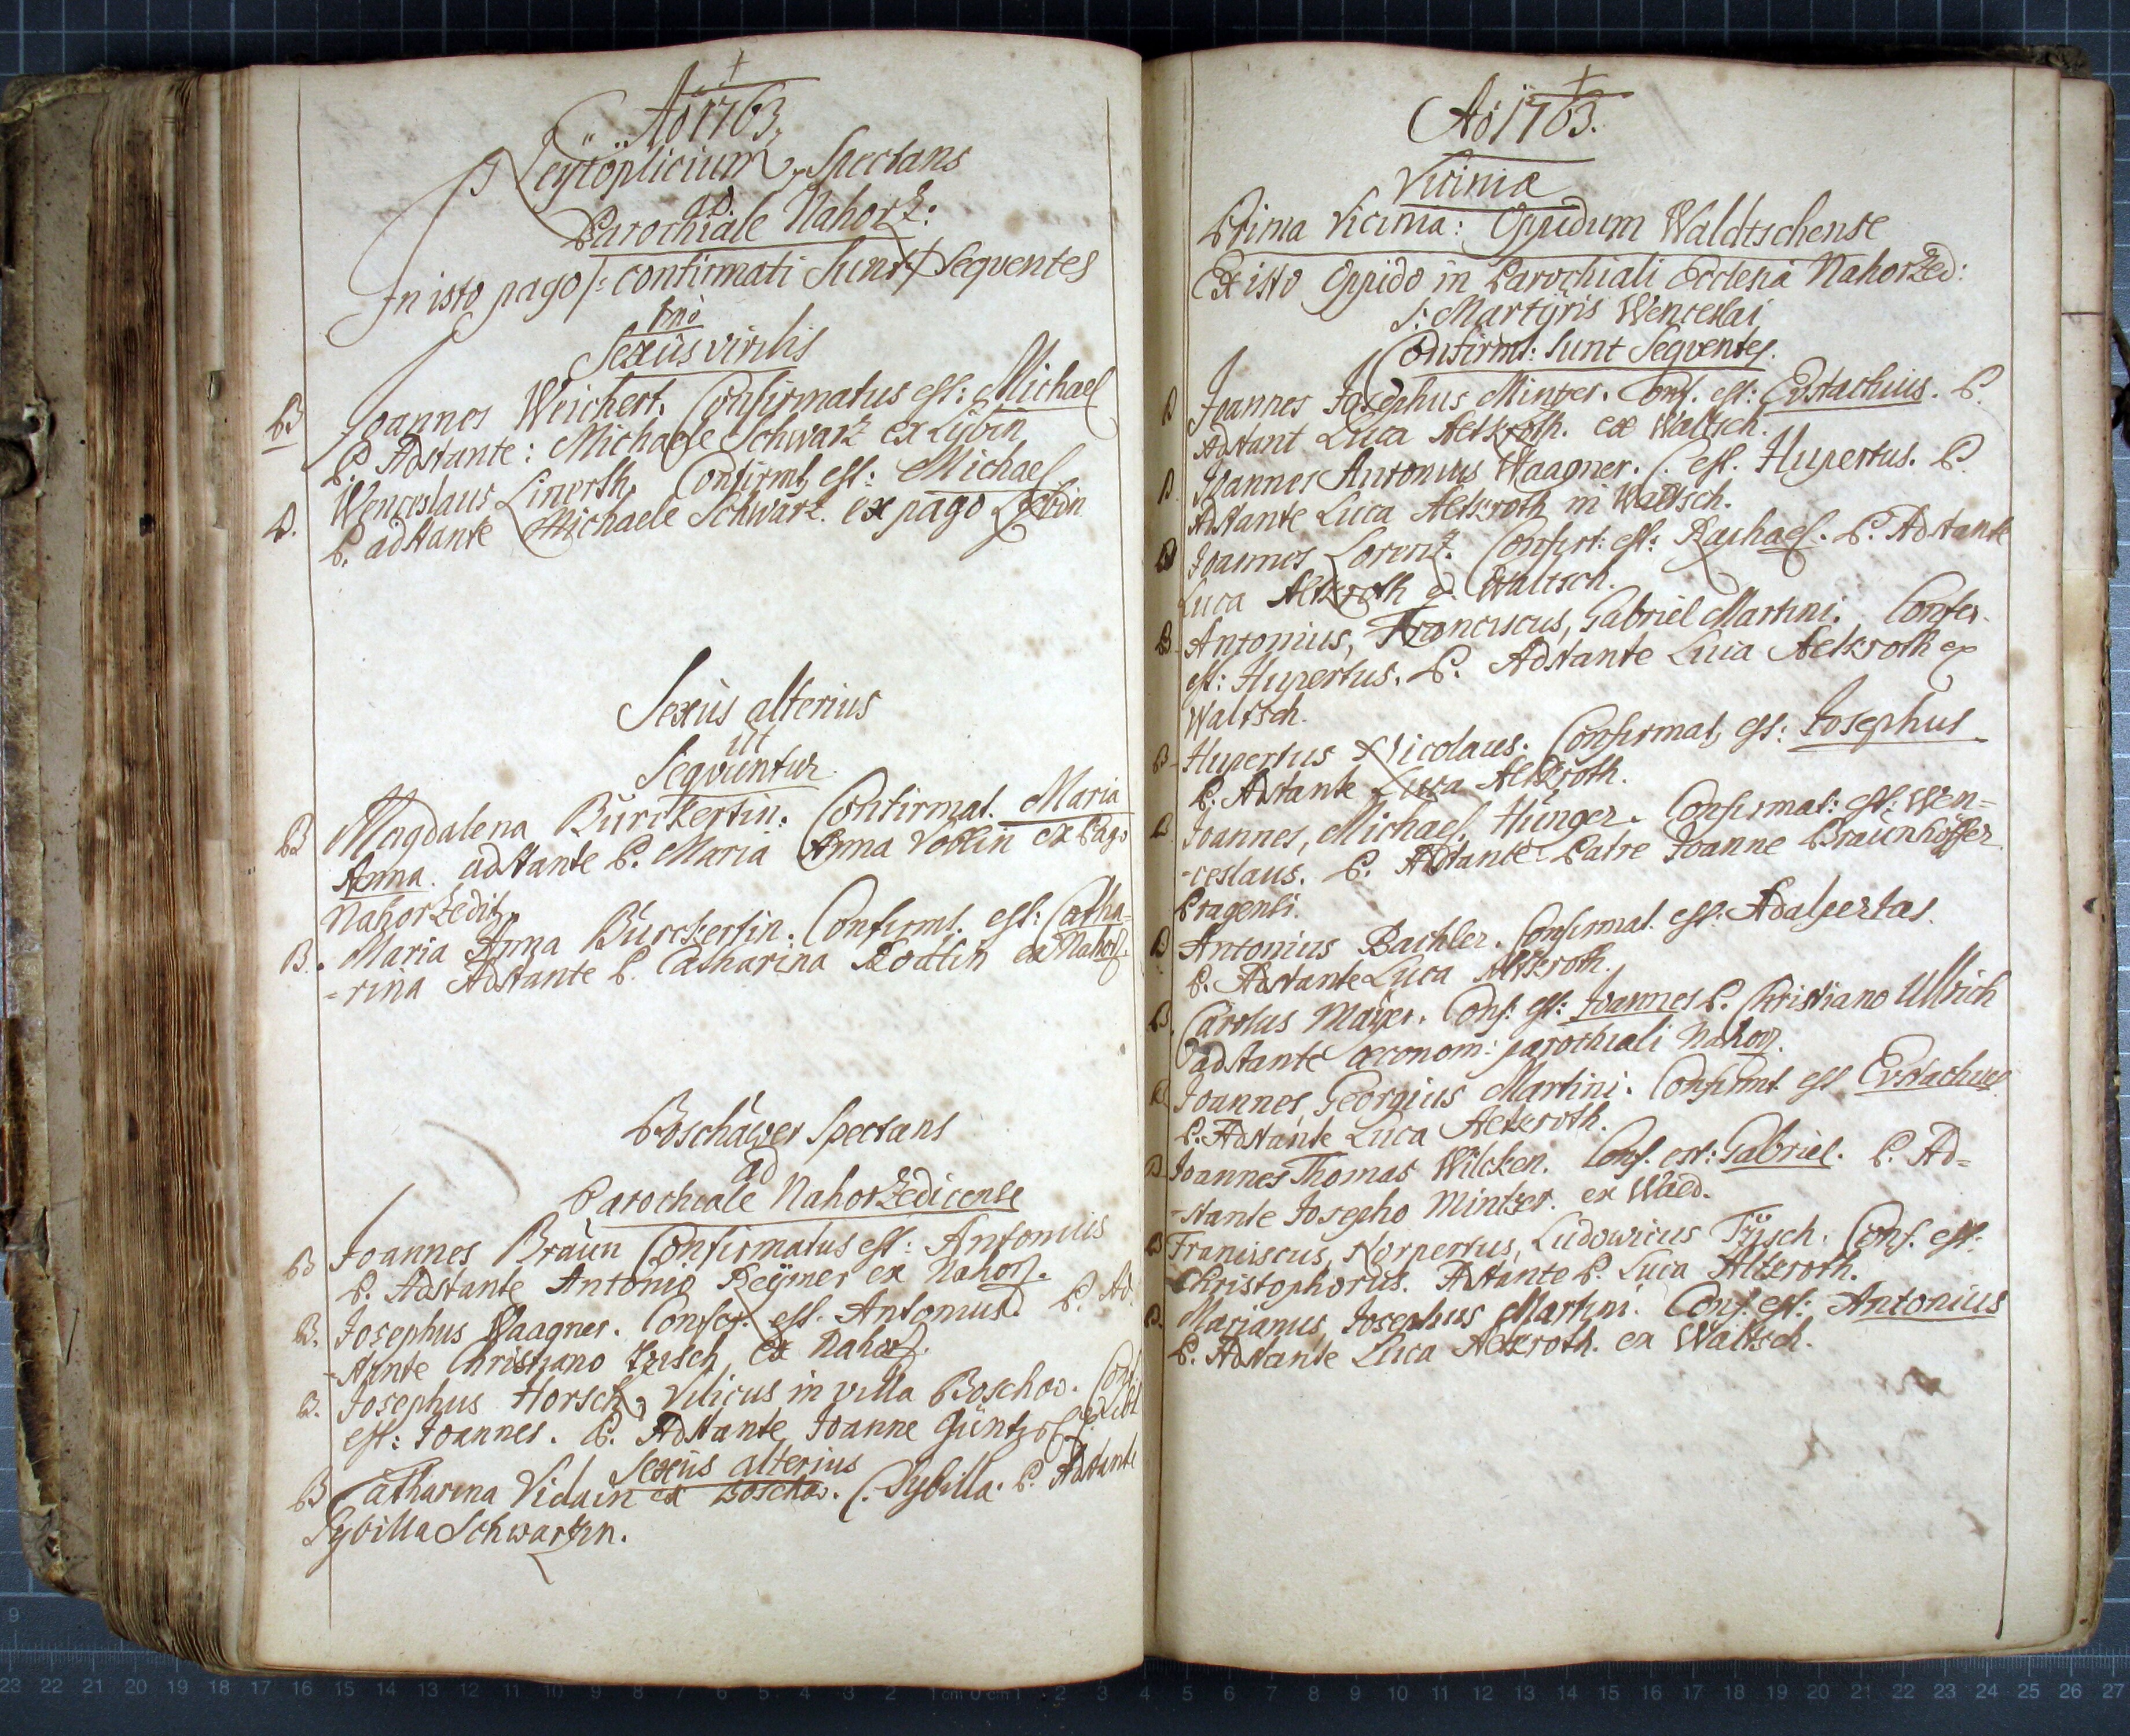 Aö 1763.
Neytöplicium, Spectans
ad
Parochiale Nahorz:
In isto pago /: confirmati Sunt :/ Seqventes
1mò
Sexûs virilis
B Joannes Weichert. Confirmatus est: Michael
P. Adstante: Michaele Schwarz ex Lybin
B. Wenceslaus Linerth, Confirmt, est: Michael
P. adstante Michaele Schwarz. ex pago Lybin
Sexûs alterius
ut
Seqvuntur
B Magdalena Bürckertin. Confirmat. Maria
Anna. adstante P. Maria Anna ex Pago
Nahorzedit,
B. Maria Anna Bürckertin. Confirmt. est: Catha=
=rina Adstante P. Catharina ex Nahorz.
Boschäwer Spectans
ad
Parochiale Nahorzedicense
B Joannes Braün Confirmatus est: Antonius
P. Adstante Antonio Reÿmer ex Nahorz.
B. Josephus Waagner. Confir. est. Antonius. P. Ad
=stante Christiano ex Nahorz.
B. Josephus Horsch, Vilicus in villa Boschow. Conf.
est: Joannes. P. Adstante Joanne Güntzel
Sexûs alterius
B Catharina Vidain ex Boschow. C. Sybilla. P. Adstante
Sybilla Schwartzin.
Aö 1763.
Viciniæ
Prima Vicinia: Oppidum Waldtschense
Ex isto Oppido in Parochiali Ecclesia Nahorzed:
S: Martÿris Wenceslai
Confirmt: Sunt Seqventes.
B Joannes Josephus Minzer. Conf. est: Evstachius. P.
Adstant Luca Aelzroth. ex Waltsch.
B. Joannes Antonius Waagner. C. est. Hupertus. P.
Adstante Luca Aelzroth in Waltsch.
B Joannes Lorenz. Confirt: est: Raphael. P. Adstante
Luca Aelzroth ex Waltsch.
B. Antonius, Franciscus, Gabriel Martini. Confir.
est: Hupertus. P. Adstante Luca Aelzroth ex
Waltsch.
B. Hupertus Nicolaus. Confirmat, est: Josephus
P. Adstante Luca Aelzroth.
B Joannes, Michael, Hünger. Confirmat: est: Wen=
=ceslaus. P. Adstante Patre Joanne Braünhöffer
Pragensi.
B Antonius Bachler. Confirmat. est: Adalpertus.
P. Adstante Luca Aelzroth.
B. Carolus Maÿer. Conf. est: Joannes P. Christiano Ullrich
adstante œconom: parochiali Nahorz.
B. Joannes, Georgius Martini. Confirmt est Evstachius
P. Adstante Luca Aelzroth.
B. Joannes Thomas Wilcken. Conf. est: Gabriel. P. Ad=
=stante Josepho Mintzer. ex Wald.
B Franciscus, Norpertus, Ludowicus Trÿsch. Conf. est:
Christophorus. Adstante P. Luca Altzroth.
B. Marianus, Josephus Martini. Conf. est: Antonius
P. Adstante Luca Aelzroth. ex Waltsch.